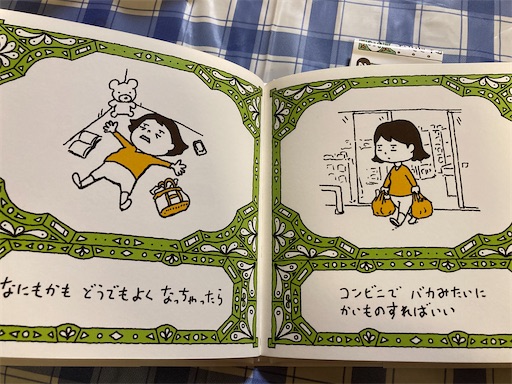 なにもかも どうでもよく なっちゃったら
コンビニで バカみたいに
かいものすればいい